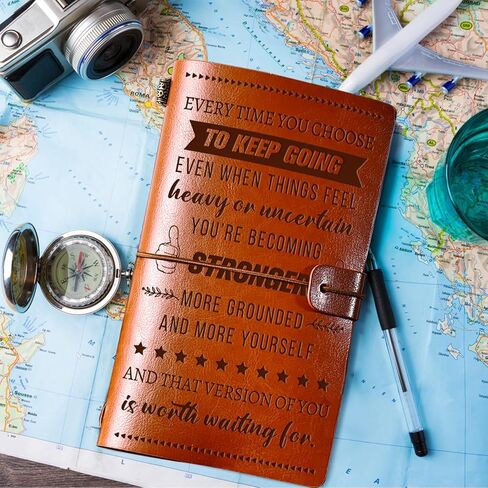 EVERY TIME YOU CHOOSE
TO KEEP GOING
EVEN WHEN THINGS FEEL
heavy or uncertain
YOU'RE BECOMING
STRONGER
MORE GROUNDED
AND MORE YOURSELF
AND THAT VERSION OF YOU
is worth waiting for.
ROMA